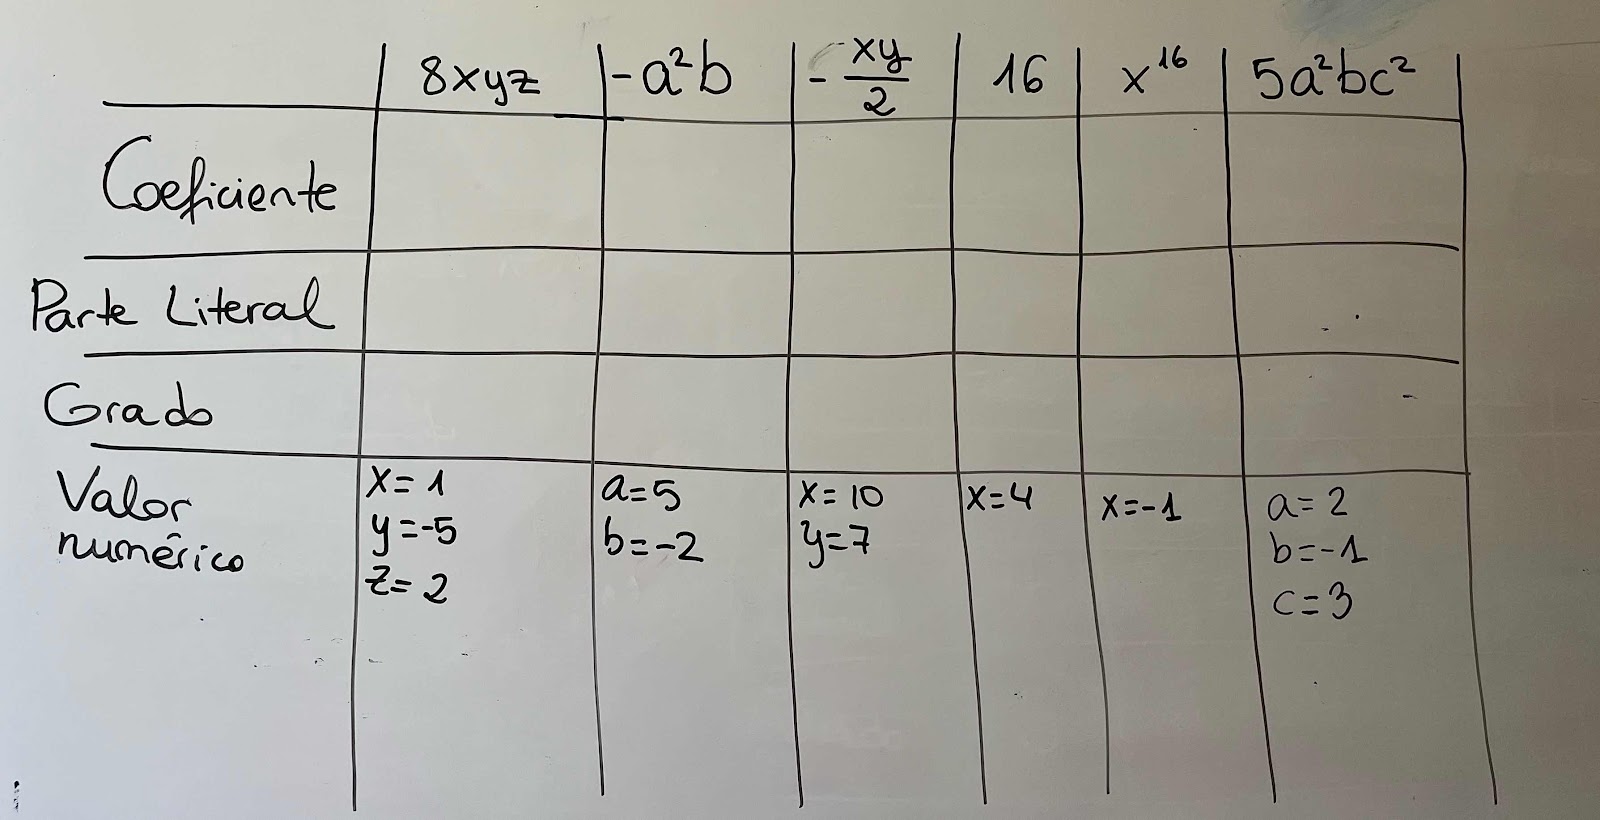 8xyz -a²b -xy/2 16 x¹⁶ 5a²bc²
Coeficiente
Parte Literal
Grado
Valor numérico
x=1
y=-5
z=2
a=5
b=-2
x=10
y=7
x=4
x=-1
a=2
b=-1
c=3